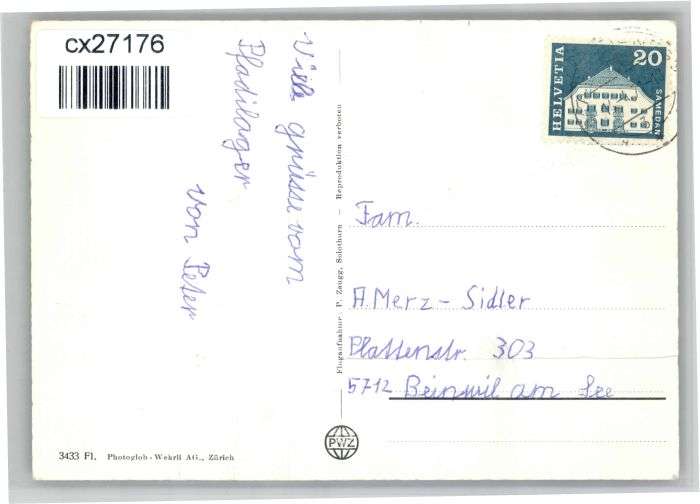 cx27176
Viele grüsse vom
Pfadilager
von Peter
Flugaufnahme: P. Zaugg, Solothurn – Reproduktion verboten
HELVETIA
20
SAMEDAN
Fam.
A. Merz - Sidler
Plattenstr. 303
5712 Beinwil am See
PWZ
3433 Fl. Photoglob-Wehrli AG., Zürich